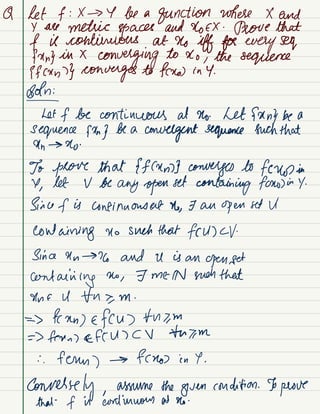 Q Let f: X → Y be a function where X and
Y are metric spaces and x₀ ∈ X. Prove that
f is continuous at x₀ iff for every seq
{xₙ} in X converging to x₀, the sequence
{f(xₙ)} converges to f(x₀) in Y.
Soln:
Let f be continuous at x₀. Let {xₙ} be a
sequence {xₙ} be a convergent sequence such that
xₙ → x₀.
To prove that {f(xₙ)} converges to f(x₀) in
Y, let V be any open set containing f(x₀) in Y.
Since f is continuous at x₀, ∃ an open set U
containing x₀ such that f(U) ⊂ V.
Since xₙ → x₀ and U is an open set
containing x₀, ∃ m ∈ ℕ such that
xₙ ∈ U ∀ n ≥ m.
=> f(xₙ) ∈ f(U) ∀ n ≥ m
=> f(xₙ) ∈ f(U) ⊂ V ∀ n ≥ m
∴ f(xₙ) → f(x₀) in Y.
Conversely, assume the given condition. To prove
that f is continuous at x₀.